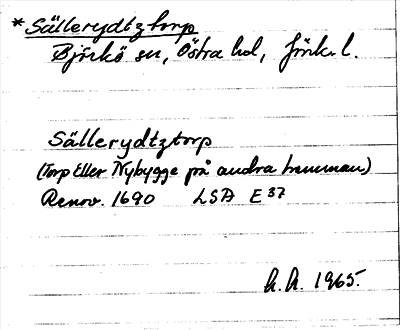 * Sällerydtztorp
Björkö sn, Östra hd, Jönk. l.
Sällerydtztorp
(Torp Eller Nybygge på andra hemman)
Renov. 1690 LSA E 37
h.h. 1965.